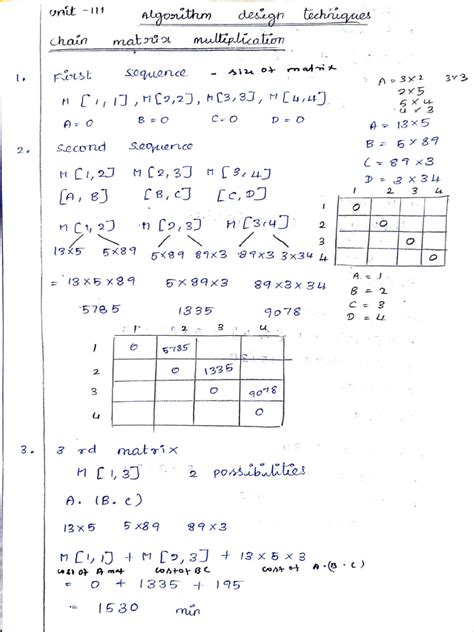 Unit - III Algorithm design techniques
chain matrix multiplication
1. First sequence - size of matrix
M [1,1], M[2,2], M[3,3], M[4,4]
A=0 B=0 C=0 D=0
A = 3x2 3x3
2x5
5x4
4x3
A = 13x5
B = 5x89
C = 89x3
D = 3x34
2. second sequence
M [1,2] M [2,3] M [3,4]
[A, B] [B, C] [C, D]
M [1,2] M [2,3] M [3,4]
13x5 5x89 5x89 89x3 89x3 3x34
= 13x5x89 5x89x3 89x3x34
5785 1335 9078
1 2 3 4
1 0
2 0
3 0
4 0
A = 1
B = 2
C = 3
D = 4
1 2 3 4
1 0 5785
2 0 1335
3 0 9078
4 0
3. 3 rd matrix
M [1,3] 2 possibilities
A. (B. C)
13x5 5x89 89x3
M [1,1] + M [2,3] + 13 x 5 x 3
cost of A mat cost of BC cost of A.(B.C)
= 0 + 1335 + 195
= 1530 min